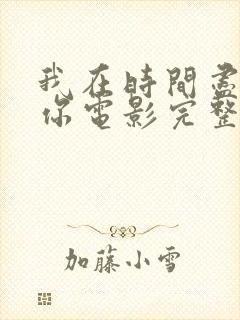 我在時間盡
你電影完整
加藤小雪